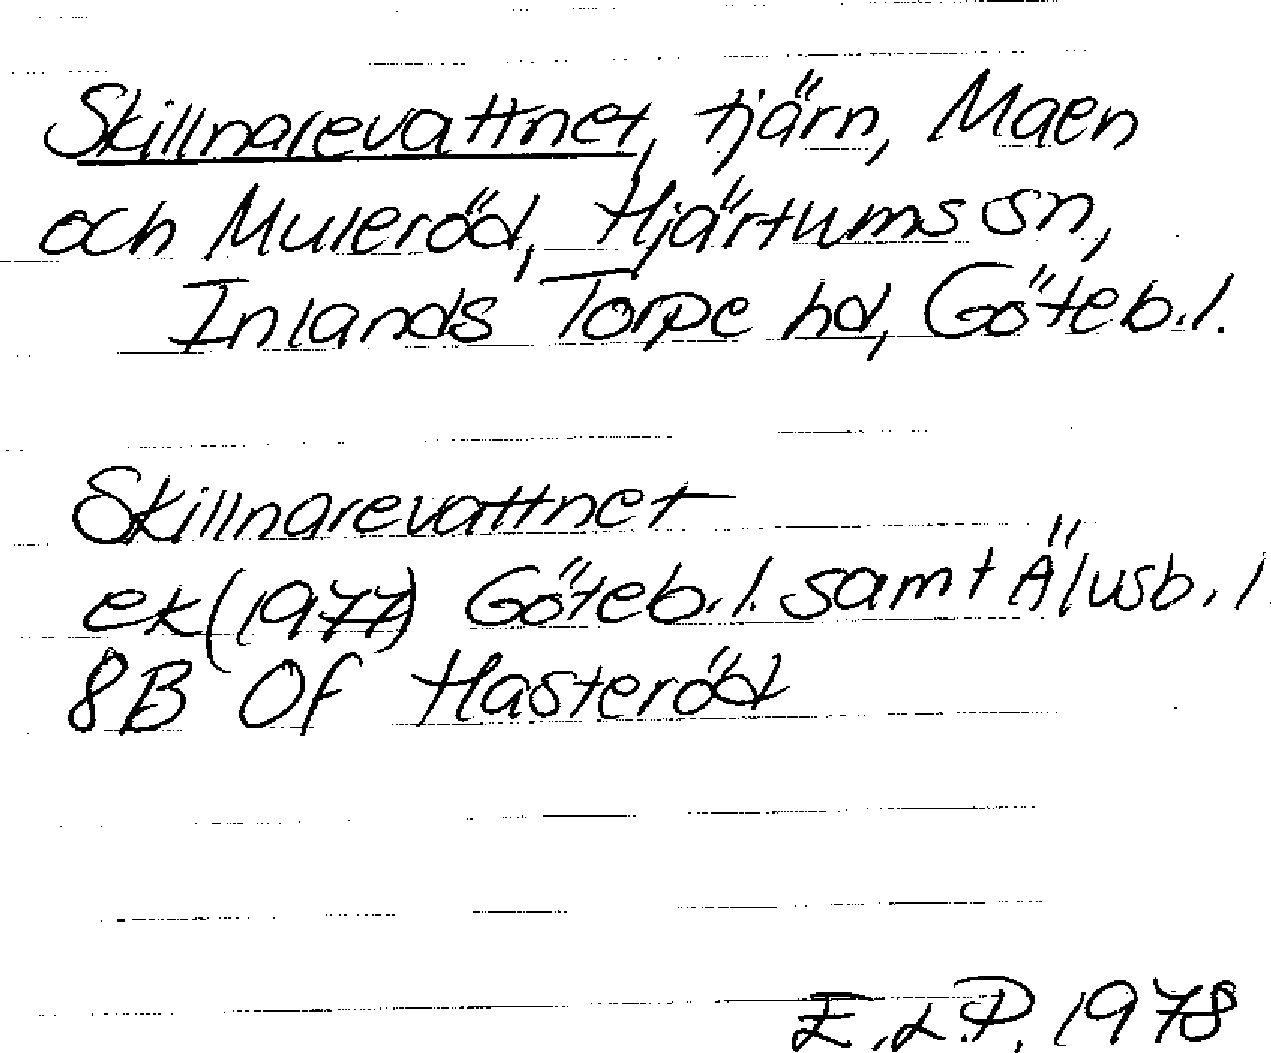 Skillnarevattnet, tjärn, Maen
och Muleröd, Hjärtums sn,
Inlands Torpe hd, Göteb.l.
Skillnarevattnet
ek(1977) Göteb.l. samt Älvsb.l
8B 0f Hasteröd
E.L.P. 1978